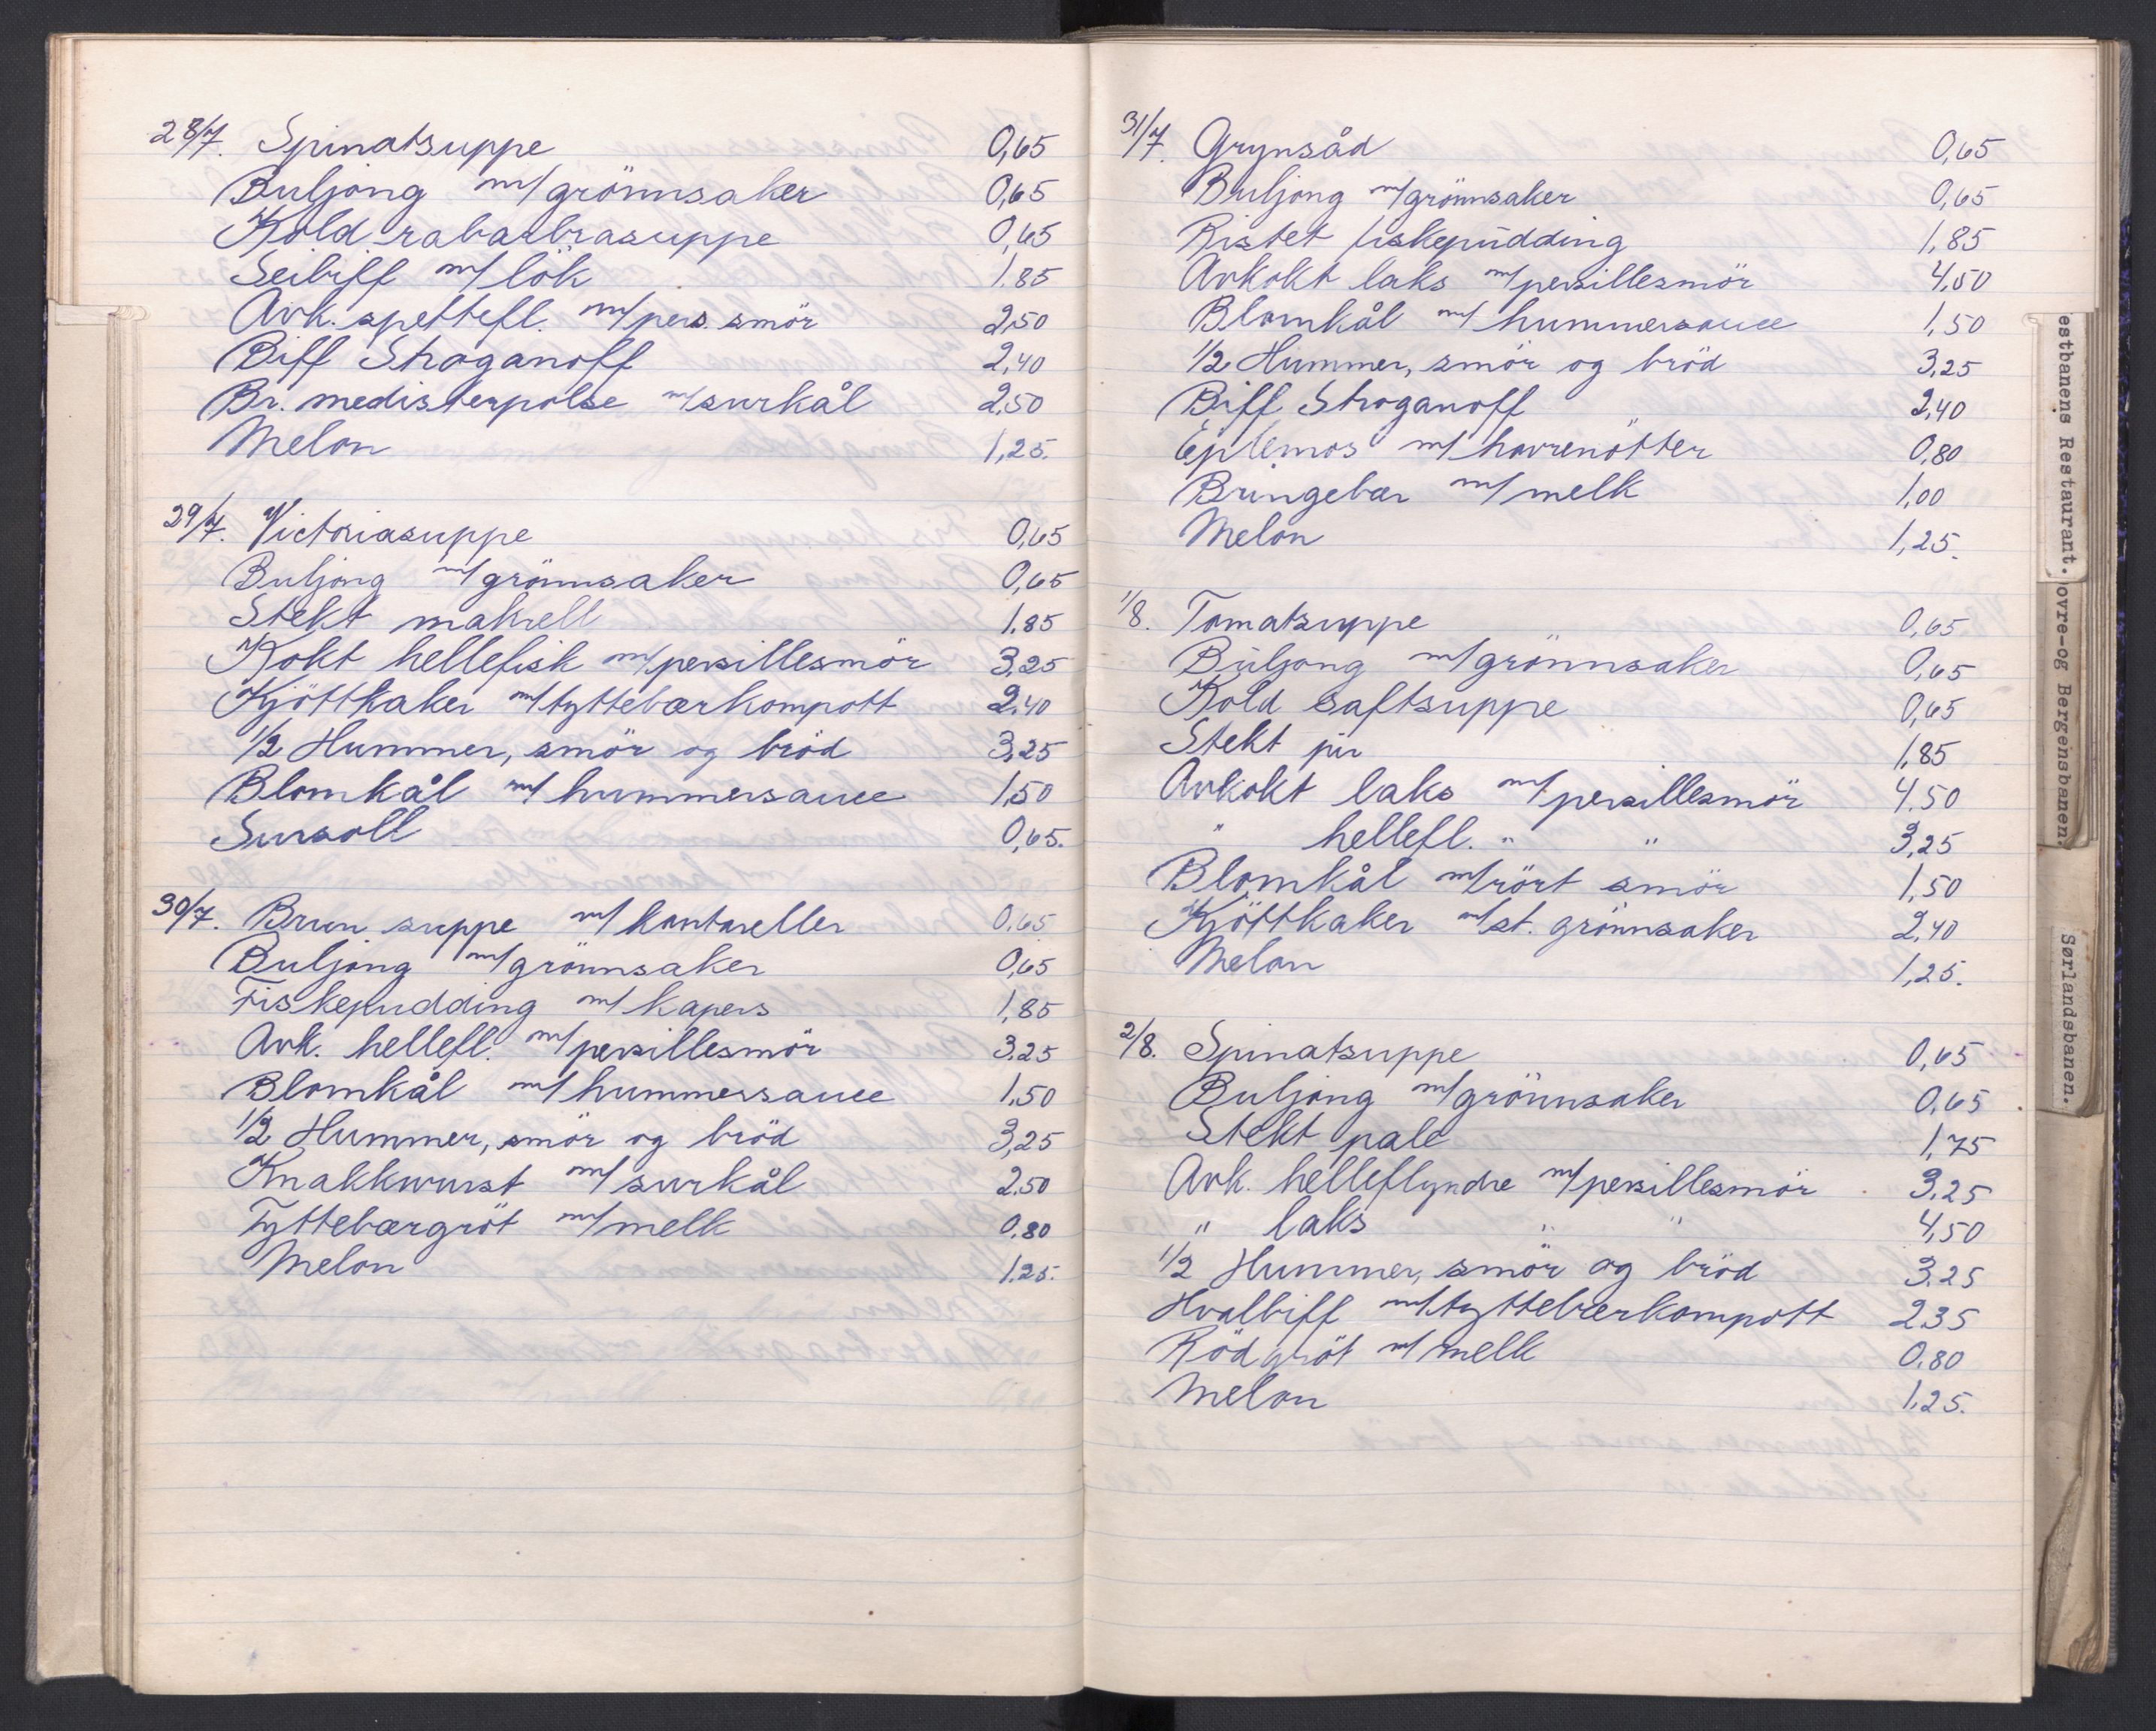 28/7. Spinatsuppe 0,65
Buljong m/grönnsaker 0,65
Kold rabarbrasuppe 0,65
Seibiff m/lök 1.85
Avk. spettefl. m/pers. smör 2,50
Biff Stroganoff 2,40
Br. medisterpölse m/surkål 2,50
Melon 1,25.
29/7. Victoriasuppe 0,65
Buljong m/grönnsaker 0,65
Stekt makrell 1.85
Kokt hellefisk m/persillesmör 3,25
Kjöttkaker m/tyttebærkompott 2,40
1/2 Hummer, smör og bröd 3,25
Blomkål m/hummersauce 1,50
Sursoll 0,65.
30/7. Brun suppe m/kantareller 0,65
Buljong m/grönnsaker 0,65
Fiskepudding m/kapers 1,85
Avk. hellefl. m/persillesmör 3.25
Blomkål m/hummersauce 1,50
1/2 Hummer, smör og bröd 3,25
Knakkwurst m/surkål 2,50
Tyttebærgröt m/melk 0,80
Melon 1.25.
31/7. Grynsåd 0,65
Buljong m/grönnsaker 0,65
Ristet fiskepudding 1,85
Avkokt laks m/persillesmör 4,50
Blomkål m/hummersauce 1,50
1/2 Hummer, smör og bröd 3,25
Biff Stroganoff 2,40
Eplemos m/havrenötter 0,80
Bringebær m/melk 1,00
Melon 1,25.
1/8. Tomatsuppe 0,65
Buljong m/grönnsaker 0,65
Kold saftsuppe 0,65
Stekt pir 1,85
Avkokt laks m/persillesmör 4.50
" hellefl. " " 3,25
Blomkål m/rört smör 1,50
Kjöttkaker m/st. grönnsaker 2,40
Melon 1,25.
2/8. Spinatsuppe 0,65
Buljong m/grönnsaker 0,65
Stekt pale 1,75
Avk. helleflyndre m/persillesmör 3,25
" laks " " 4,50
1/2 Hummer, smör og bröd 3.25
Hvalbiff m/tyttebærkompott 2.35
Rödgröt m/melk 0.80
Melon 1.25.
estbanens Restaurant.
ovre-og Bergensbanen.
Sørlandsbanen.